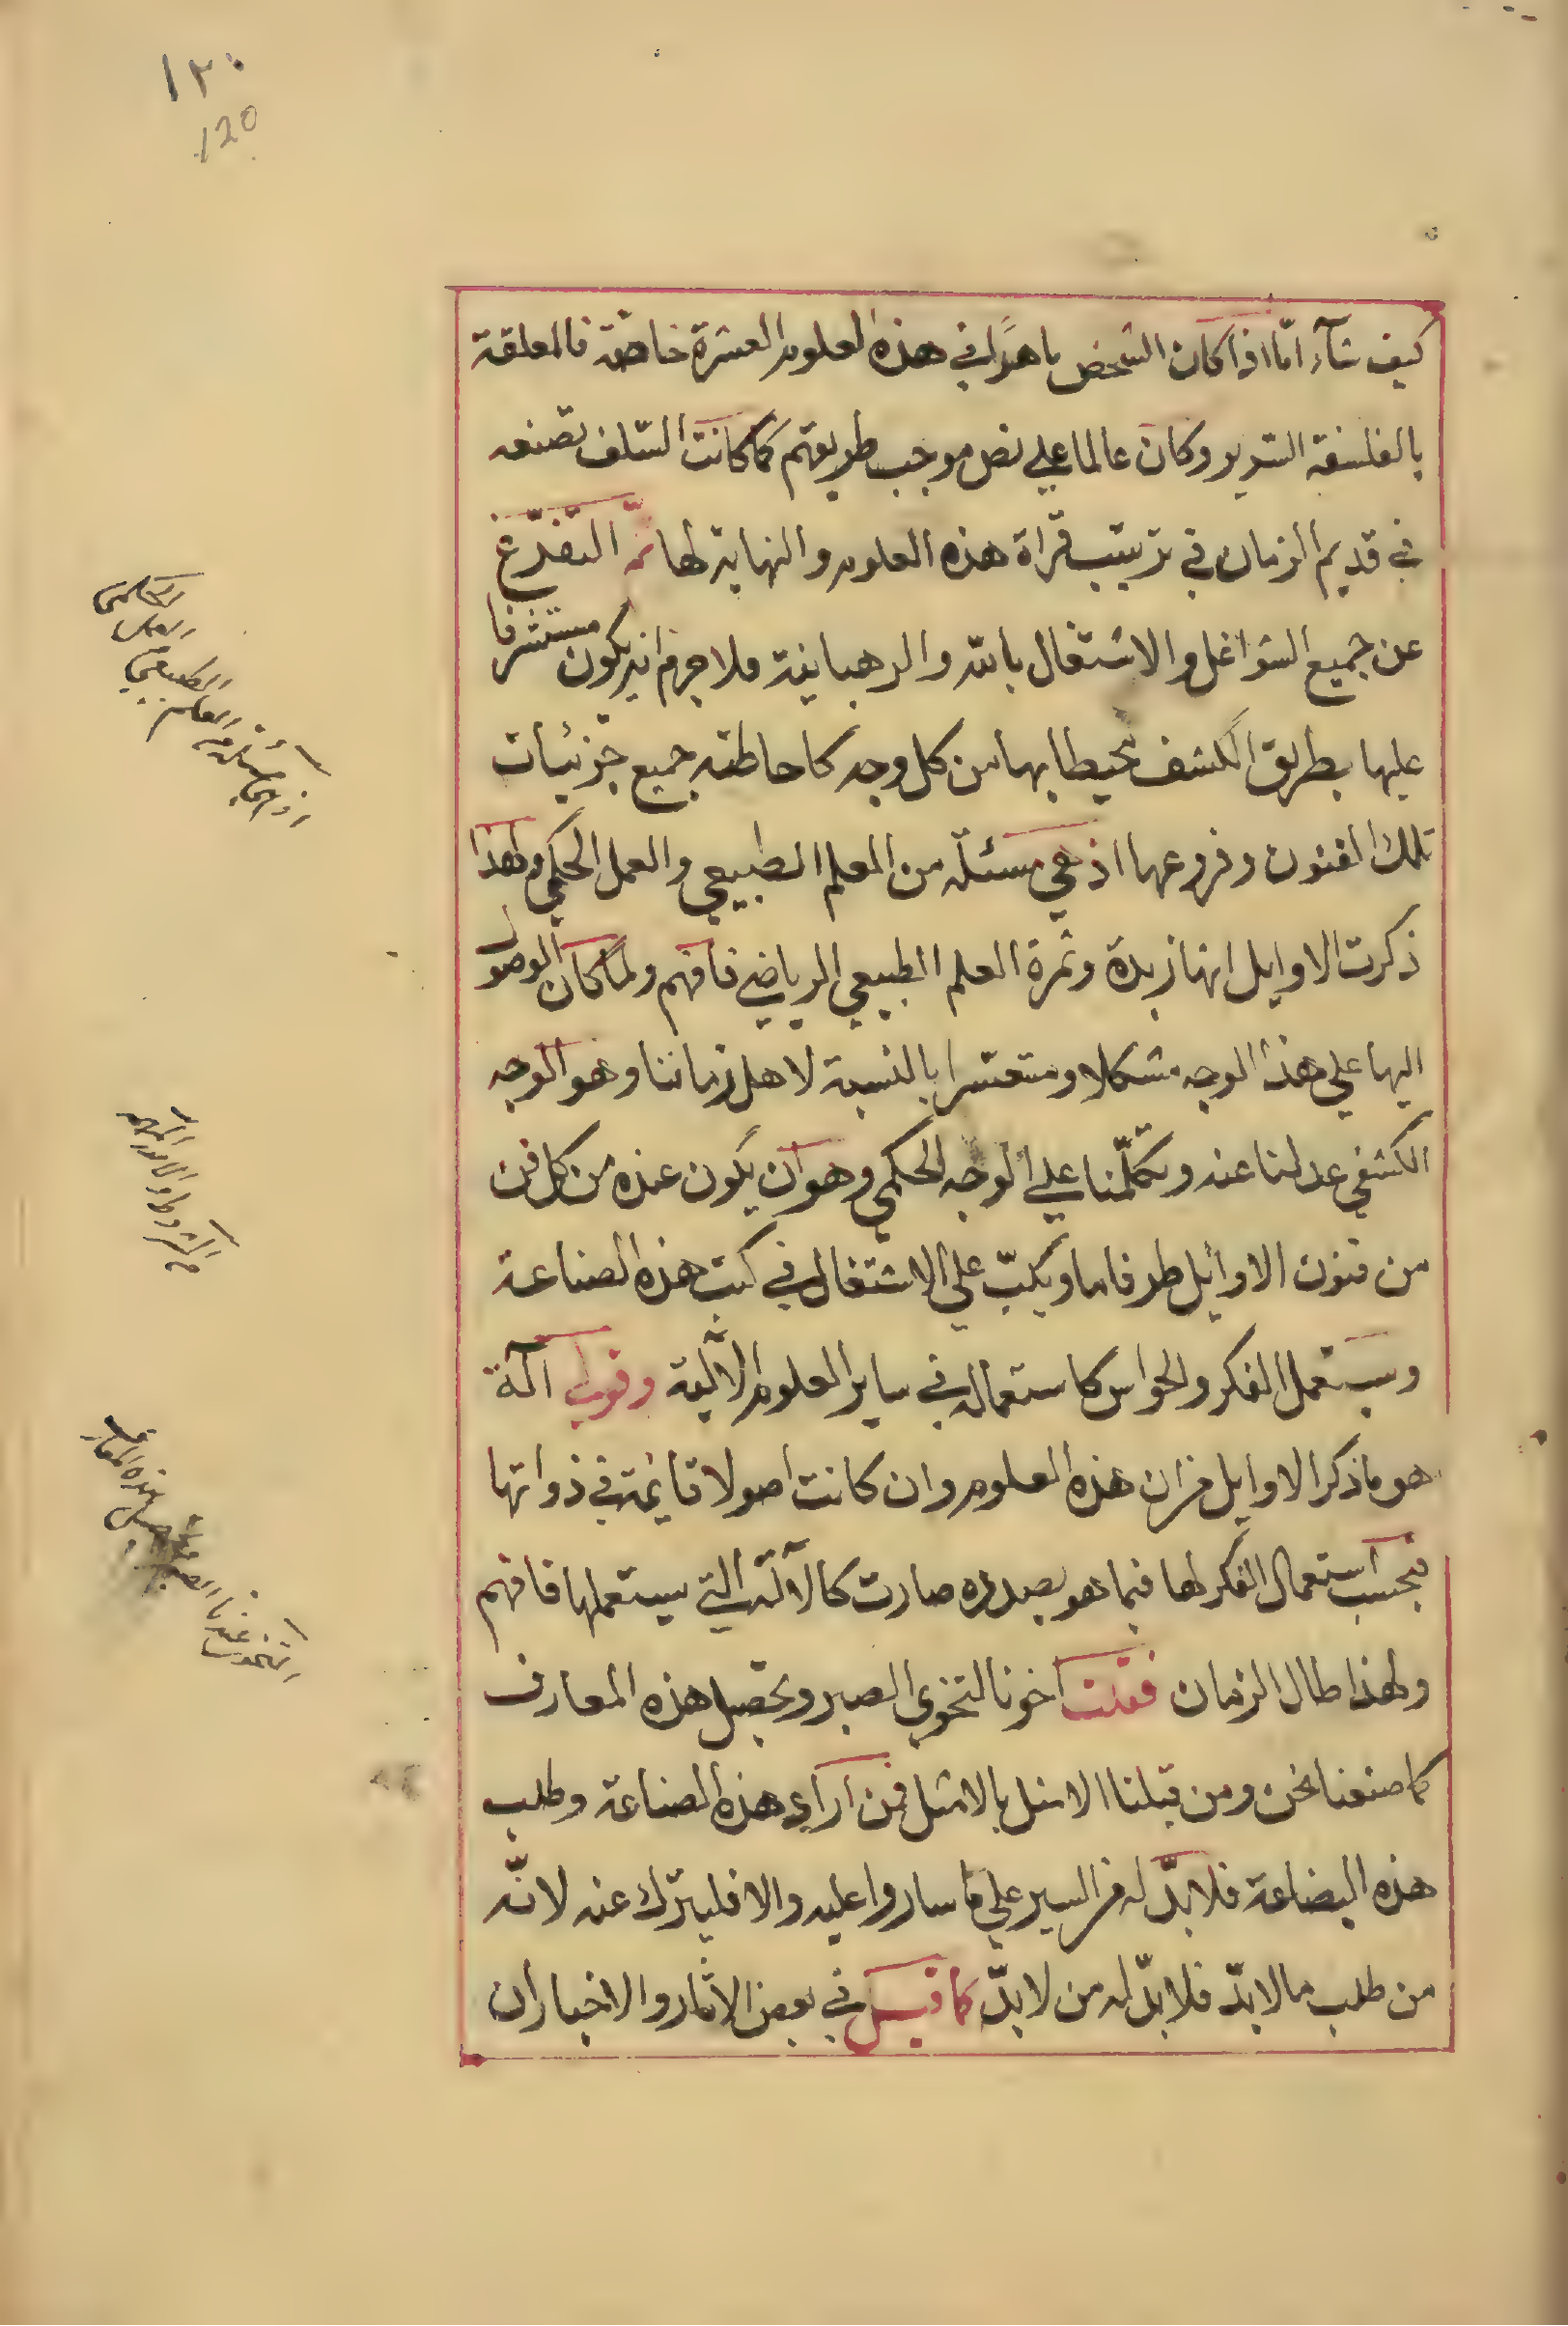 ١٢٠
120
كيف شآء امّا اذا كان الشخص ماهرًا في هذه العلوم العشرة خاصّة فالمعلقة
بالفلسفة التدبير وكان عالما علي نص موجب طريقتهم كما كانت السّلف تصنعه
في قديم الزمان في ترتيب قرّاة هذه العلوم والنهاية لها ثمّ التفرّغ
عن جميع الشواغل والاشتغال بالله والرهبانية فلا جرم انه يكون مستشرفا
عليها بطريق الكشف محيطا بها من كل وجه كاحاطته جميع جزئيات
تلك الفنون وفروعها اذ هي مسئلة من المعلم الطبيعي والعمل الحكمي ولهذا
ذكرت الاوايل انها زبدة وثمرة العلم الطبيعي الرياضي فافهم ولما كان الوصول
اليها علي هذا الوجه مشكلا ومتعسّرا بالنسبة لاهل زماننا وهو الوجه
الكشفي عدلنا عنه وتكلّمنا علي الوجه الحكمي وهو ان يكون عنده من كل فن
من فنون الاوائل طرفا ما ويكبّ علي الاشتغال في كتب هذه الصناعة
وسيتعمل الفكر والحواس كاستعماله في ساير العلوم الآليّة وقولي آلة
هو ما ذكر الاوايل من ان هذه العلوم وان كانت اصولا قايمة في ذواتها
فبحسب استعمال الفكر لها فيما هو بصدده صارت كالآلة التي سيتعملها فافهم
ولهذا طال الزمان فقلت اخونا التخوي الصبر وتحصيل هذه المعارف
كما صنعنا نحن ومن قبلنا الامثل بالامثل فمن اراد هذه الصناعة وطلب
هذه البضاعة فلا بدّ له من السير علي ما ساروا عليه والا فليترك عنه لانّه
من طلب مالا بدّ فلا بدّ له من لا بدّ كما قيل في بعض الاثار والاخبار ان